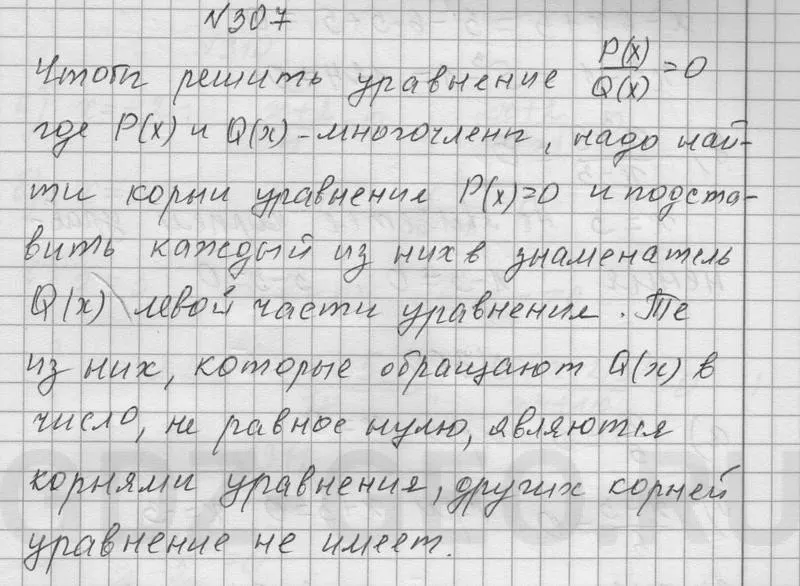 №307
Чтобы решить уравнение P(x)/Q(x)=0
где P(x) и Q(x) - многочлены, надо най-
ти корни уравнения P(x)=0 и подста-
вить каждый из них в знаменатель
Q(x) левой части уравнения. Те
из них, которые обращают Q(x) в
число, не равное нулю, являются
корнями уравнения, других корней
уравнение не имеет.